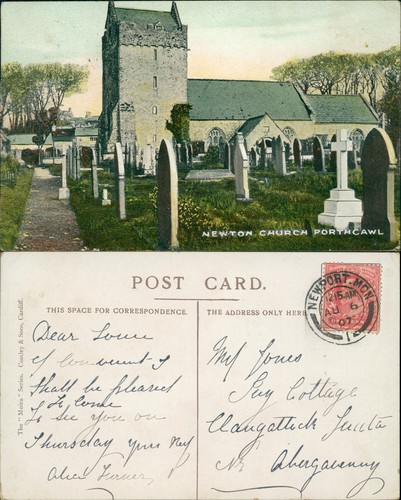 NEWTON CHURCH PORTHCAWL
POST CARD.
THIS SPACE FOR CORRESPONDENCE.
THE ADDRESS ONLY HERE
The "Moira" Series. Cousley & Sons, Cardiff.
NEWPORT. MON
12 15 AM
AU 6
07
Dear Louie
if convenient I
shall be pleased
to come
to see you on
Thursday your
Alice Turner
Mrs Jones
Ivy Cottage
Llangattock
Nr Abergavenny